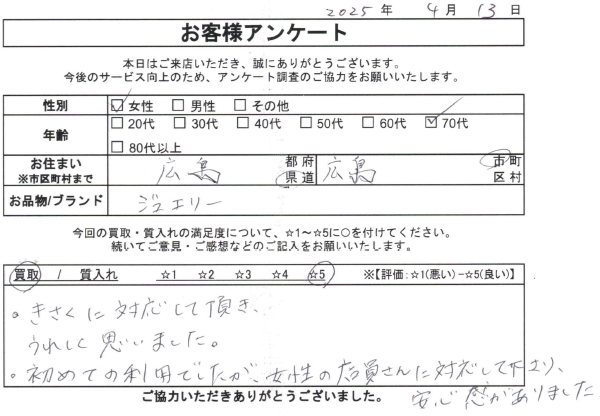 2025年 4月 13日
お客様アンケート
本日はご来店いただき、誠にありがとうございます。
今後のサービス向上のため、アンケート調査のご協力をお願いいたします。
性別 ☑女性 □男性 □その他
年齢 □20代 □30代 □40代 □50代 □60代 ☑70代
□80代以上
お住まい ※市区町村まで 広島 都府県道 広島 市町区村
お品物/ブランド ジュエリー
今回の買取・質入れの満足度について、☆1～☆5に○を付けてください。
続いてご意見・ご感想などのご記入をお願いいたします。
買取 / 質入れ ☆1 ☆2 ☆3 ☆4 ☆5 ※【評価:☆1(悪い)-☆5(良い)】
・きさくに対応して頂き、
うれしく思いました。
・初めての利用でしたが、女性の店員さんに対応して下さり、
安心感がありました
ご協力いただきありがとうございました。